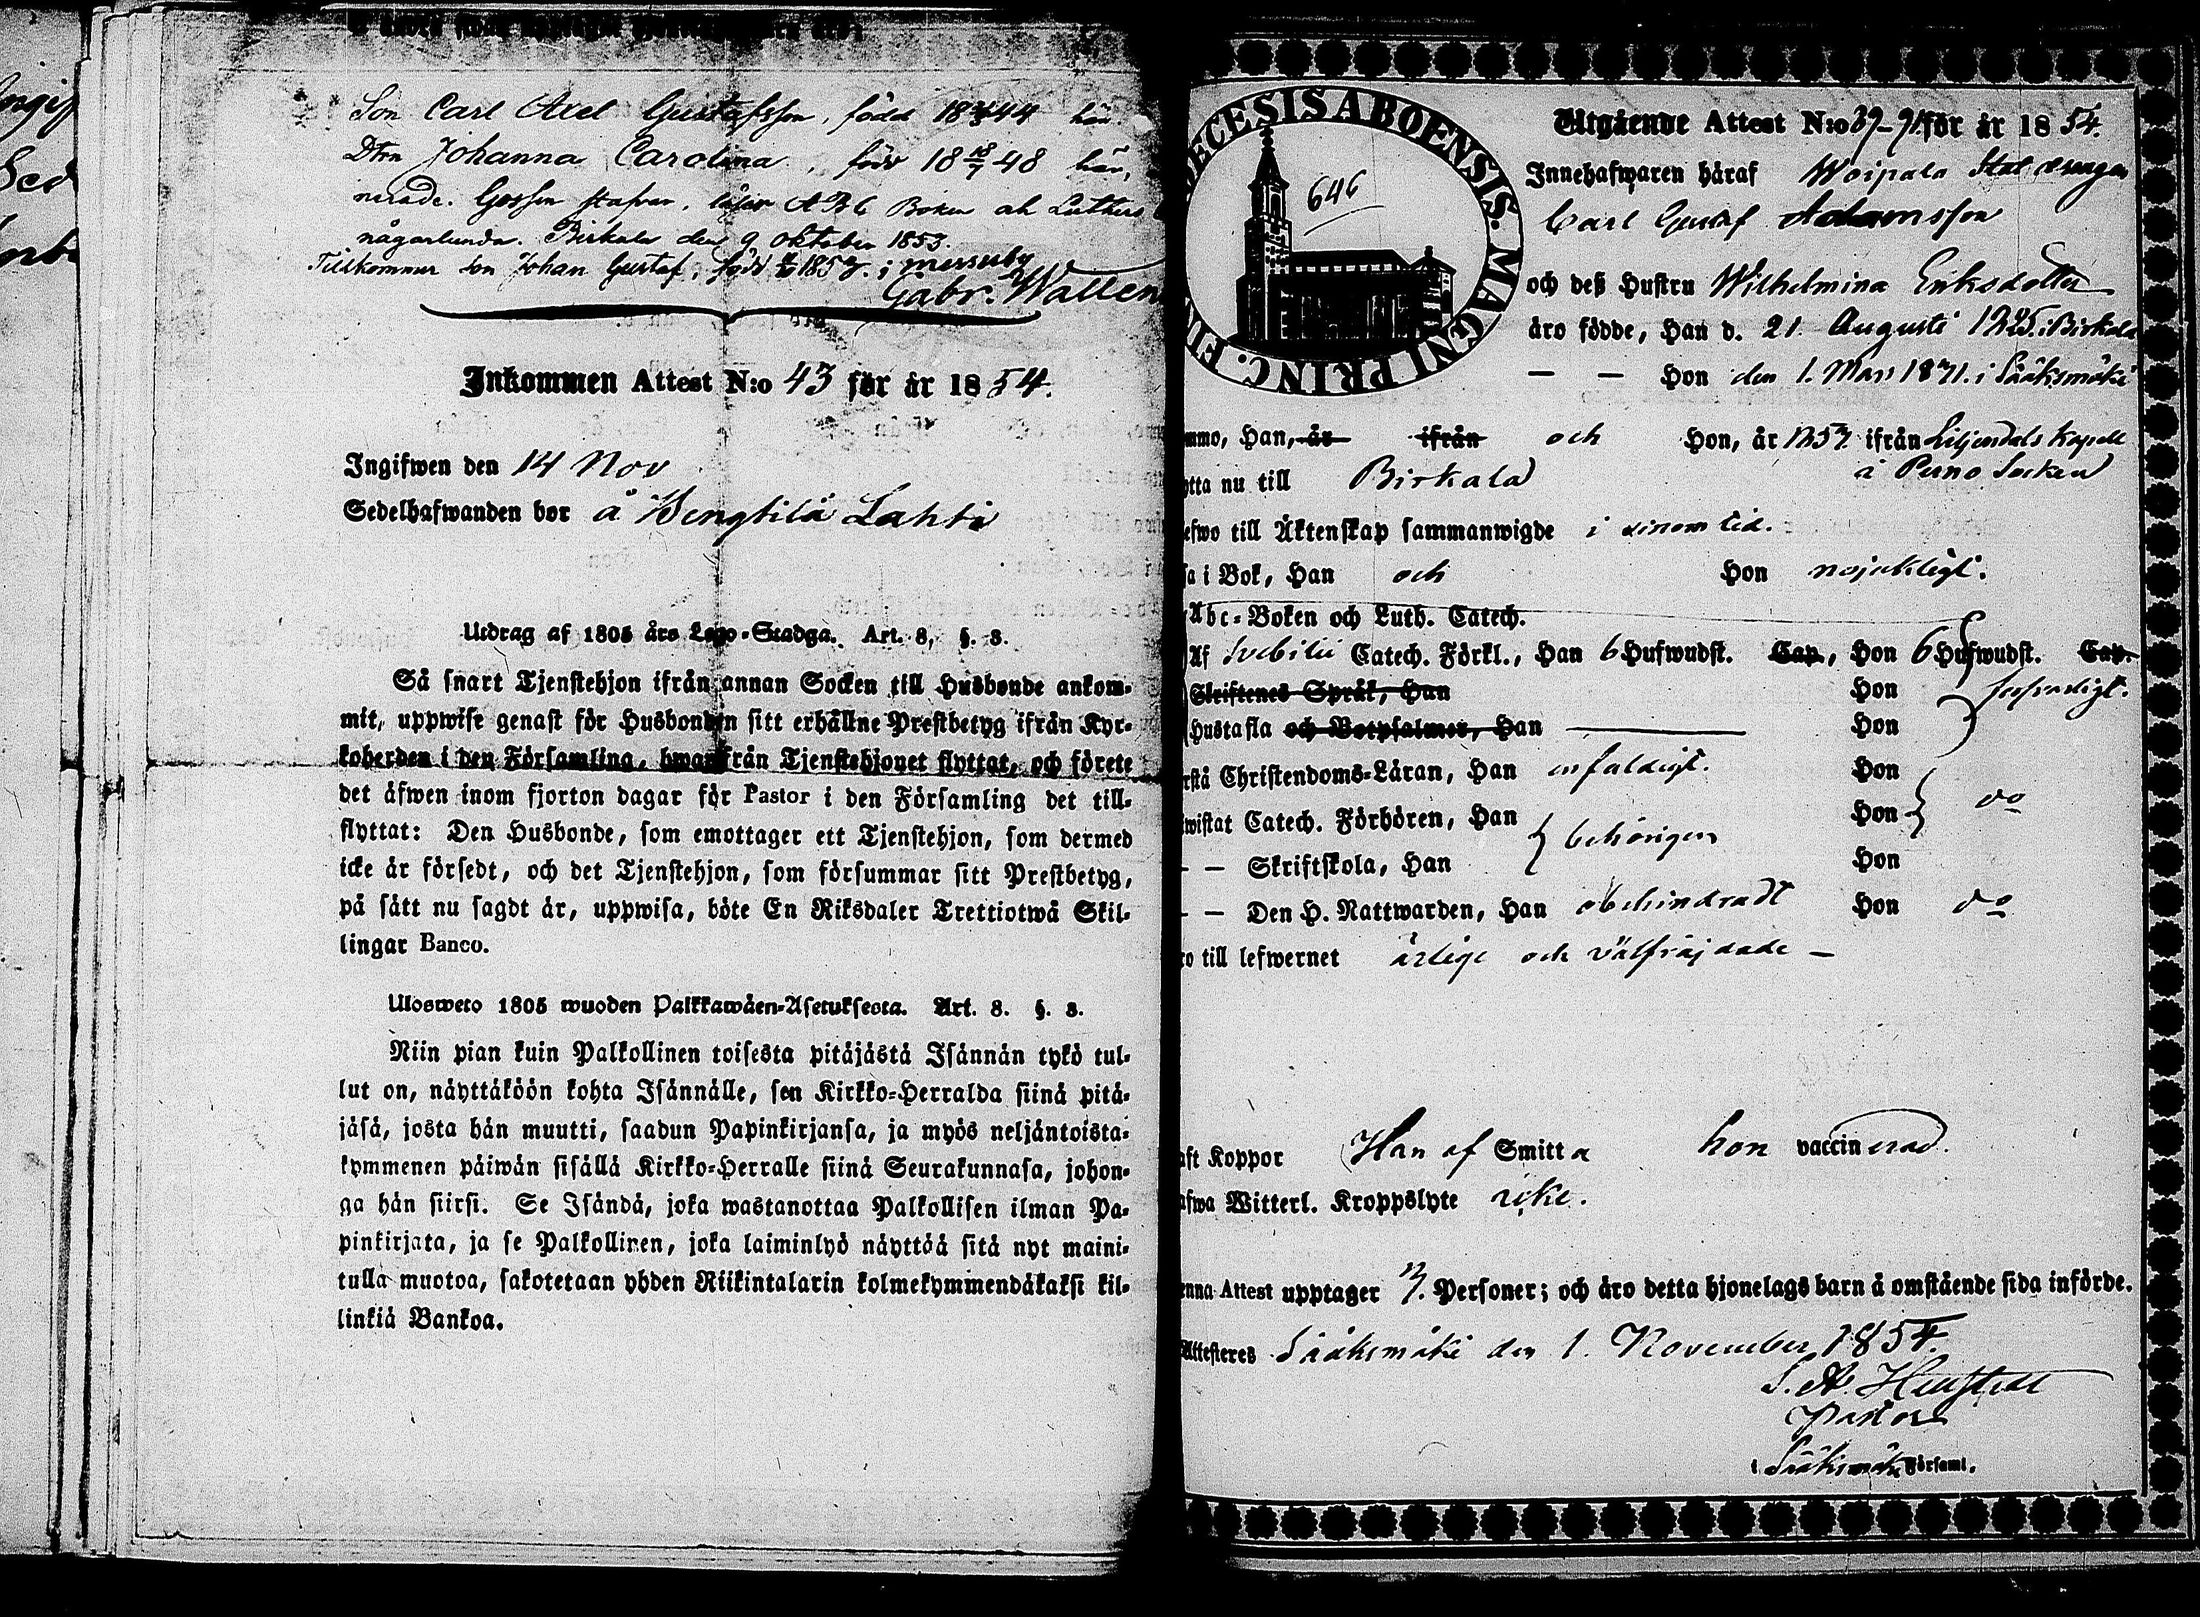 Son Carl Axel Gustafsson, född 18 44 här.
Dtrn Johanna Carolina, född 18 18/7 48 här,
nerade. Gossen stafvar, läser ABC Boken och Luthers
någorlunda. Birkala den 9 oktober 1853.
Tillkommer son Johan Gustaf, född 1853. i messuby
Gabr. Wallen
Inkommen Attest N:o 43 för år 1854.
Ingifwen den 14 Nov
Sedelhafwanden bor å Wengtilä Lahti
Utdrag af 1805 års Lego-Stadga. Art. 8, §. 8.
Så snart Tjenstehjon ifrån annan Socken till Husbonde ankom-
mit, uppwise genast för Husbonden sitt erhållne Prestbetyg ifrån Kyr-
koherden i den Församling, hwarifrån Tjenstehjonet flyttat, och förete
det äfwen inom fjorton dagar för Pastor i den Församling det till-
flyttat: Den Husbonde, som emottager ett Tjenstehjon, som dermed
icke är försedt, och det Tjenstehjon, som försummar sitt Prestbetyg,
på sätt nu sagdt är, uppwisa, böte En Riksdaler Trettiotwå Skil-
lingar Banco.
Ulosweto 1805 wuoden Palkkawäen-Asetuksesta. Art. 8. §. 8.
Niin pian kuin Palkollinen toisesta pitäjästä Isännän tykö tul-
lut on, näyttäköön kohta Isännälle, sen Kirkko-Herralda siinä pitä-
jäsä, josta hän muutti, saadun Papinkirjansa, ja myös neljäntoista-
kymmenen päiwän sisällä Kirkko-Herralle siinä Seurakunnasa, johon-
ga hän siirsi. Se Isändä, joka wastanottaa Palkollisen ilman Pa-
pinkirjata, ja se Palkollinen, joka laiminlyö näyttää sitä nyt maini-
tulla muotoa, sakotetaan yhden Riikintalarin kolmekymmendäkaksi kil-
linkiä Bankoa.
ECESIS ABOENSIS. MAGNI PRINC. FI
646
Utgående Attest N:o 89-91 för år 1854.
Innehafwaren häraf Woipala Stal drengen
Carl Gustaf Adamsson
och deß Hustru Wilhelmina Eriksdotter
äro födde, Han d. 21 Augusti 1825 i Birkala
— — Hon den 1. Mars 1831. i Sääksmäki
mmo, Han, är ifrån och Hon, år 1853 ifrån Liljendals Kapell
å Perno Socken
ytta nu till Birkala
efwo till Äktenskap sammanwigde i sinom tid.
sa i Bok, Han och Hon nöjaktigt.
Abc-Boken och Luth. Catech.
Af Svebilii Catech. Förkl., Han 6 Hufwudst. Cap., Hon 6 Hufwudst. Cap.
Skriftenes Språk, Han Hon
Hustafla och Botpsalmer, Han — Hon
rstå Christendoms-Läran, Han enfaldigt. Hon
wistat Catech. Förhören, Han behörigen Hon do
— — Skriftskola, Han Hon
— — Den H. Nattwarden, Han obehindradt Hon do
ro till lefwernet ärlige och välfräjdade —
aft Koppor Han af Smitta hon vaccinerad.
afwa Witterl. Kroppslyte icke.
enna Attest upptager Personer; och äro detta hjonelags barn å omstående sida införde.
Attesteres Sääksmäki den 1. November 1854.
Pastor
i Sääksmäki Församl.